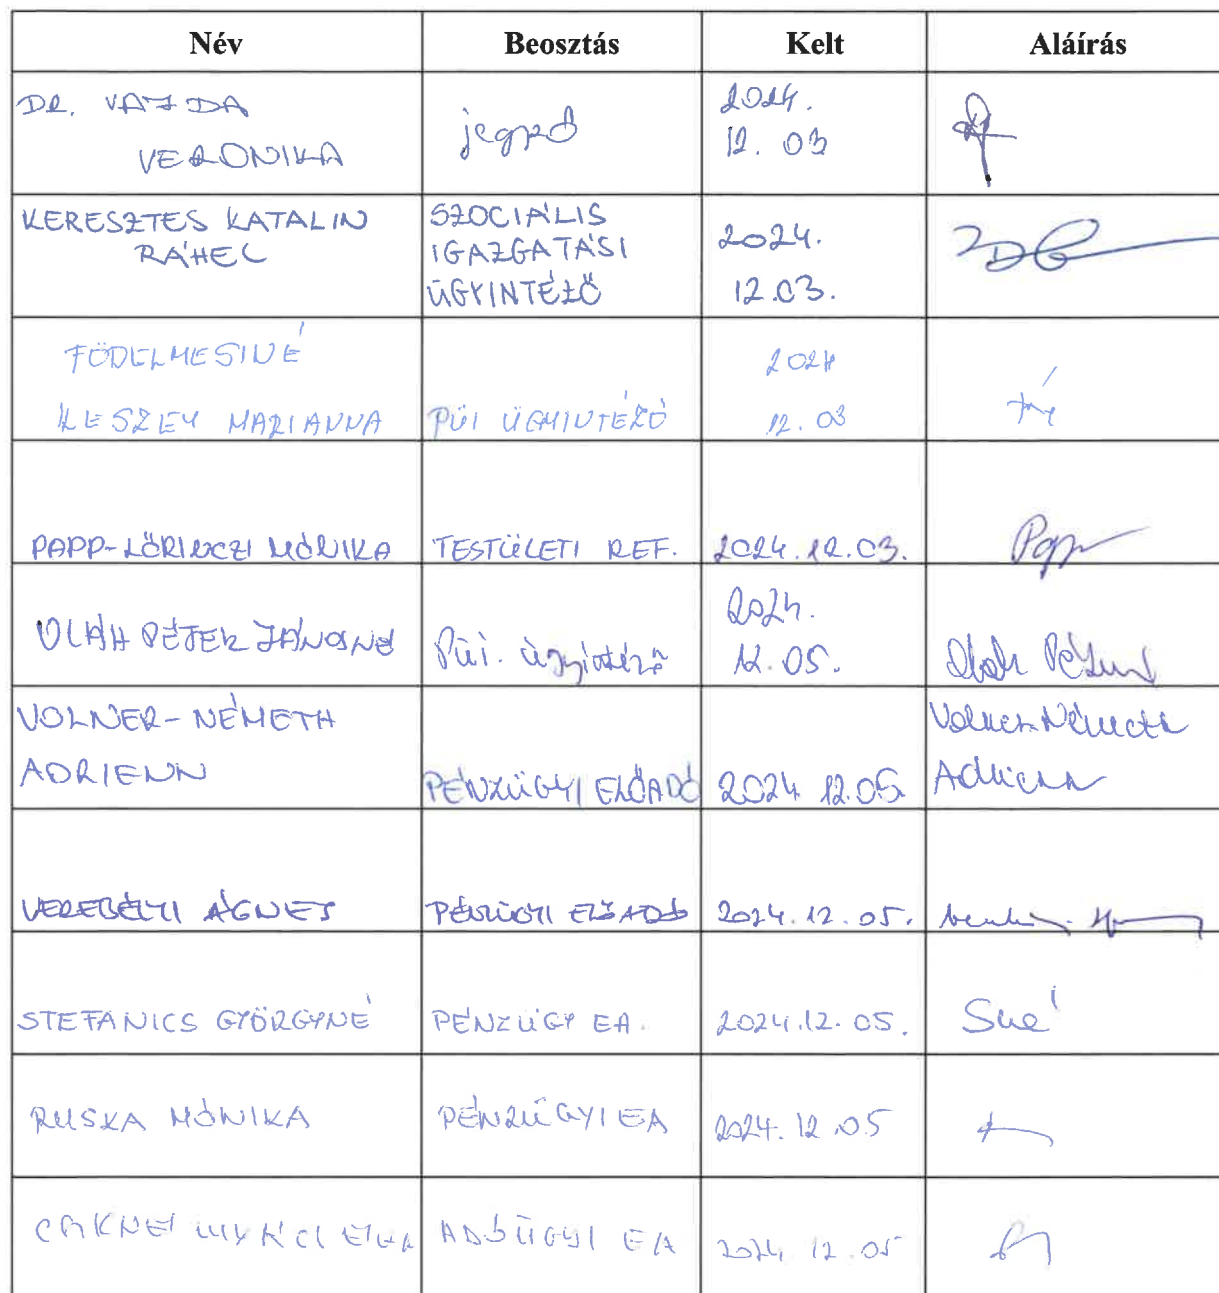 Név Beosztás Kelt Aláírás
DR. VAJDA
VERONIKA
jegyző
2024.
12. 03
KERESZTES KATALIN
RÁHEL
SZOCIÁLIS
IGAZGATÁSI
ÜGYINTÉZŐ
2024.
12.03.
FÖDELMESINÉ
KESZEY MARIANNA
PÜI ÜGYINTÉZŐ
2024
12.03
PAPP-LŐRINCZI MÓNIKA
TESTÜLETI REF.
2024.12.03.
Papp
OLÁH PÉTER JÁNOSNÉ
Püi. ügyintéző
2024.
12.05.
Oláh Péterné
VOLNER-NÉMETH
ADRIENN
PÉNZÜGYI ELŐADÓ
2024 12.05
Volner-Németh
Adrienn
VEREBÉLYI ÁGNES
PÉNZÜGYI ELŐADÓ
2024.12.05.
STEFANICS GYÖRGYNÉ
PÉNZÜGY EA.
2024.12.05.
Sné
RUSKA MÓNIKA
PÉNZÜGYI EA
2024.12.05
ADÓÜGYI EA
2024. 12.05